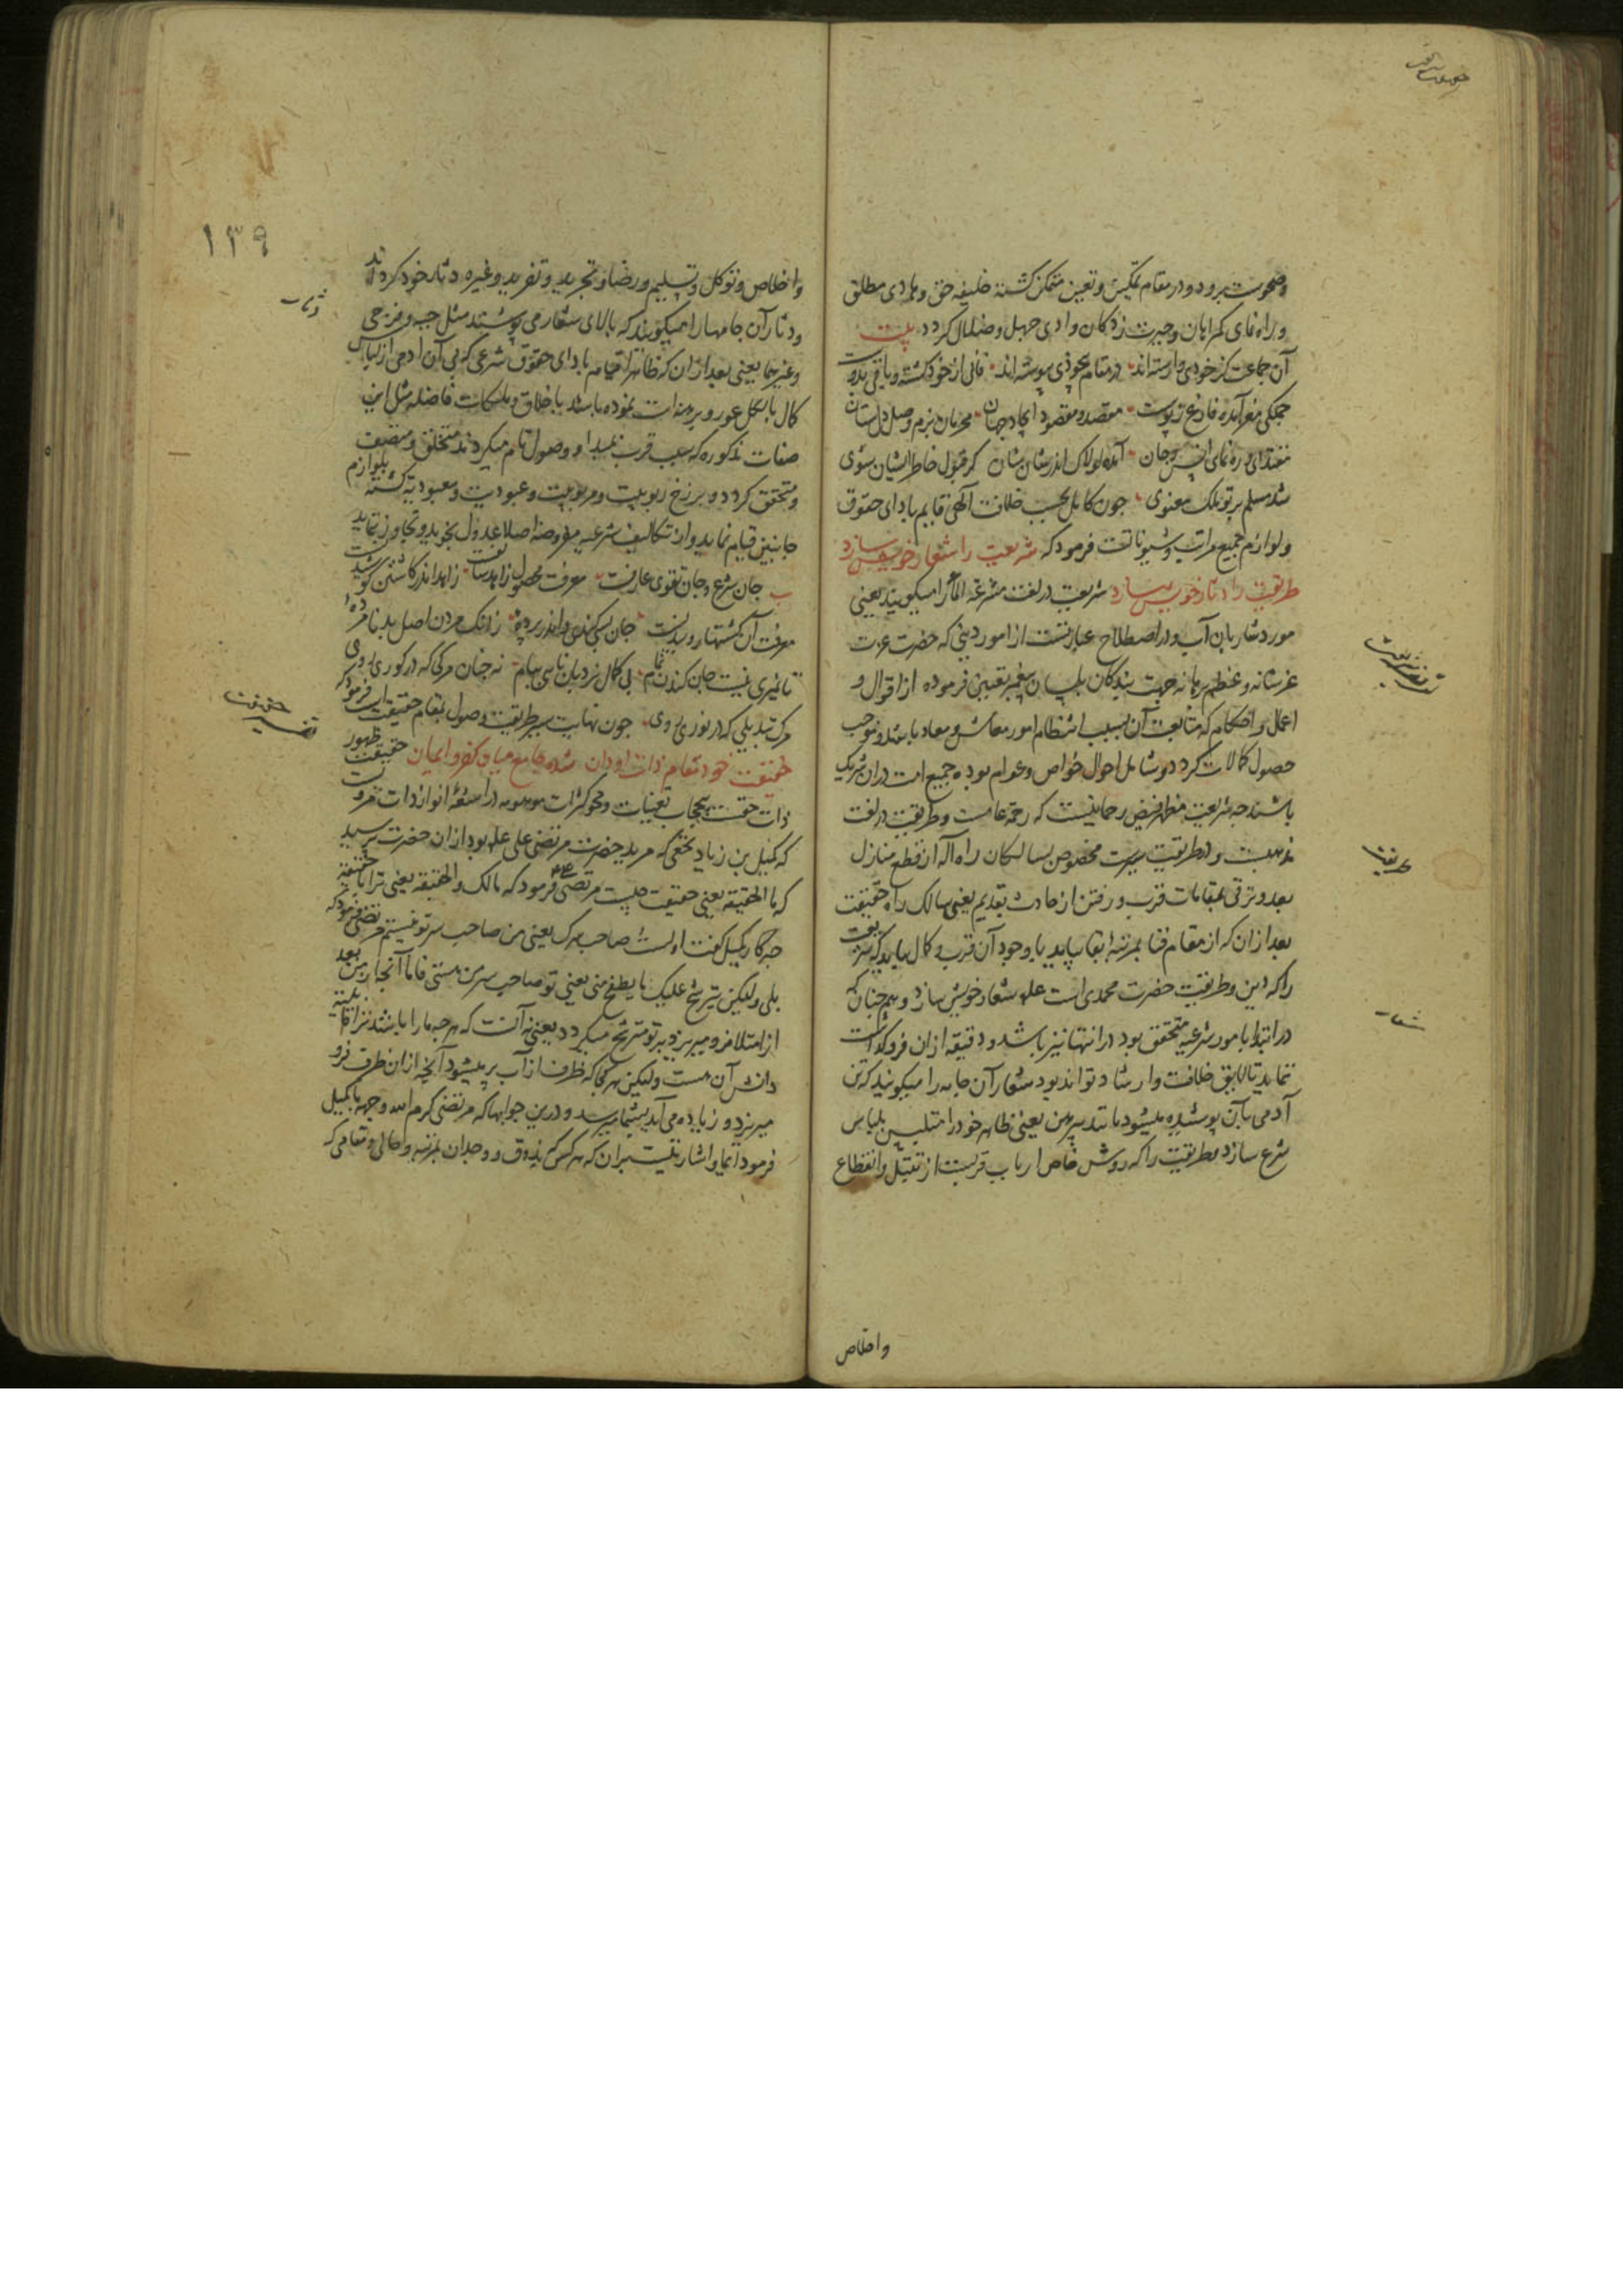 وصحوست برود و در مقام تمکین و تعین متمکن کشته خلیفه حق و هادی مطلق
و راه نمای کمراهان و حیرت زدکان وادی جهل و ضلال کردد بیت
آن جماعت کز خودی وارسته اند در مقام بیخودی پیوسته اند فانی از خود کشته و باقی بدوست
جملکی مغز آمده فارغ ز پوست مقصد و مقصود ایجاد جهان محرمان بزم وصل دلستان
مقتدای و ره نمای انس و جان آمده لولاک اندر شان شان کر قبول خاطر ایشان شوی
شد مسلم بر تو ملک معنوی چون کامل بحسب خلافت الهی قایم بادای حقوق
و لوازم جمیع مراتب و شیوناتست فرمود که شریعت را شعار خویش سازد
طریقت را دثار خویش سازد شریعت در لغت مشرعة الماء را میکویند یعنی
مورد شاربان آب و در اصطلاح عبارتست از امور دینی که حضرت عزت
عز شانه و عظم برهانه جهت بندکان بلسان پیغمبر تعیین فرموده از اقوال و
اعمال و احکام که متابعت آن سبب انتظام امور معاش و معاد باشد و موجب
حصول کمالات کردد و شامل احوال خواص و عوام بوده جمیع امت در آن شریک
باشند چه شریعت مظهر فیض رحمانیست که رحمة عامست و طریقت در لغت
مذهبست و در طریقت سیریست مخصوص بسالکان راه اله از قطع منازل
بعد و ترقی بمقامات قرب و رفتن از حادث بقدیم یعنی سالک راه حقیقت
بعد از آن که از مقام فنا بمرتبه بقا بیاید با وجود آن قرب و کمال بباید که شریعت
را که دین و طریقت حضرت محمدی است علم شعار خویش سازد و همچنان که
در ابتدا بامور شرعیه متحقق بود در انتها نیز باشد و دقیقه از آن فروکذاشت
ننماید تا لایق خلافت و ارشاد تواند بود شعار آن جامه را میکویند که تن
آدمی بآن پوشیده میشود مانند پیرهن یعنی ظاهر خود را متلبس بلباس
شرع سازد و طریقت را که روش خاص ارباب قربست از تبتل و انقطاع
شریعت
طریقت
شعار
واخلاص
۱۳۹
واخلاص و توکل و تسلیم و رضا و تجرید و تفرید و غیره دثار خود کرداند
و دثار آن جامها را میکویند که بالای شعار می پوشند مثل جبه و فرجی
و غیرهما یعنی بعد از آن که ظاهرا قیامه بادای حقوق شرعی که بی آن آدمی از لباس
کمال بالکل عور و برهنه است نموده باشد باخلاق و ملکات فاضله مثل این
صفات مذکوره که سبب قرب بمبدا و وصول تام میکردند متخلق و متصف
و متحقق کردد و برزخ ربوبیت و مربوبیت و عبودیت و معبودیة کشته بلوازم
جانبین قیام نماید و از تکالیف شرعیه مفروضه اصلا عدول نجوید و تجاوز ننماید
جان شرع و جان تقوی عارفست معرفت محصول زاهد سالفست زاهد اندر کاشتن کوشیدست
معرفت آن کشتها روییدنست جان بسی کندی و اندر پرده زانک مردن اصل بد نامرده
تا نمیری نیست جان کندن تمام بی کمال نردبان نایی ببام نه چنان مرکی که در کوری روی
مرک تبدیلی که در نوری روی چون نهایت سیر طریقت وصول بمقام حقیقت است فرمود که
حقیقت خود مقام ذات او دان شده جامع میان کفر و ایمان حقیقت ظهور
ذات حقست بیحجاب تعینات و محو کثرات موهومه در اشعه انوار ذات مرویست
که کمیل بن زیاد نخعی که مرید حضرت مرتضی علی علم بود از آن حضرت پرسید
که ما الحقیقة یعنی حقیقت چیست مرتضی فرمود که مالک و الحقیقه یعنی ترا با حقیقة
چه کار کمیل کفت اولست صاحب سرک یعنی من صاحب سر تو نیستم مرتضی فرمود که
بلی ولیکن یترشح علیک ما یطفح منی یعنی تو صاحب سر من هستی فاما آنجا از من بعد
از امتلا فرو میریزد بر تو مترشح میکردد یعنی نه آنست که هرچه ما را باشد ترا قابلیة
دانش آن هست ولیکن هرکاه که ظرف از آب پر میشود آنچه از آن ظرف فرو
میریزد و زیاده می آید بشما میرسد و درین جوابها که مرتضی کرم الله وجهه با کمیل
فرمود ایما و اشارتیست بر آن که هر کس که بذوق و وجدان بمرتبه و حالی و مقامی که
دثار
تفسیر حقیقت